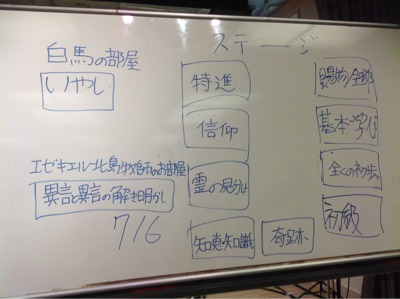 白馬の部屋
いやし
ステージ
特進
信仰
霊の見分け
知恵知識
奇跡
賜物全部
基本学び
全くの初歩
初級
エゼキエル北島牧師のお部屋
異言異言の解き明かし
7/6